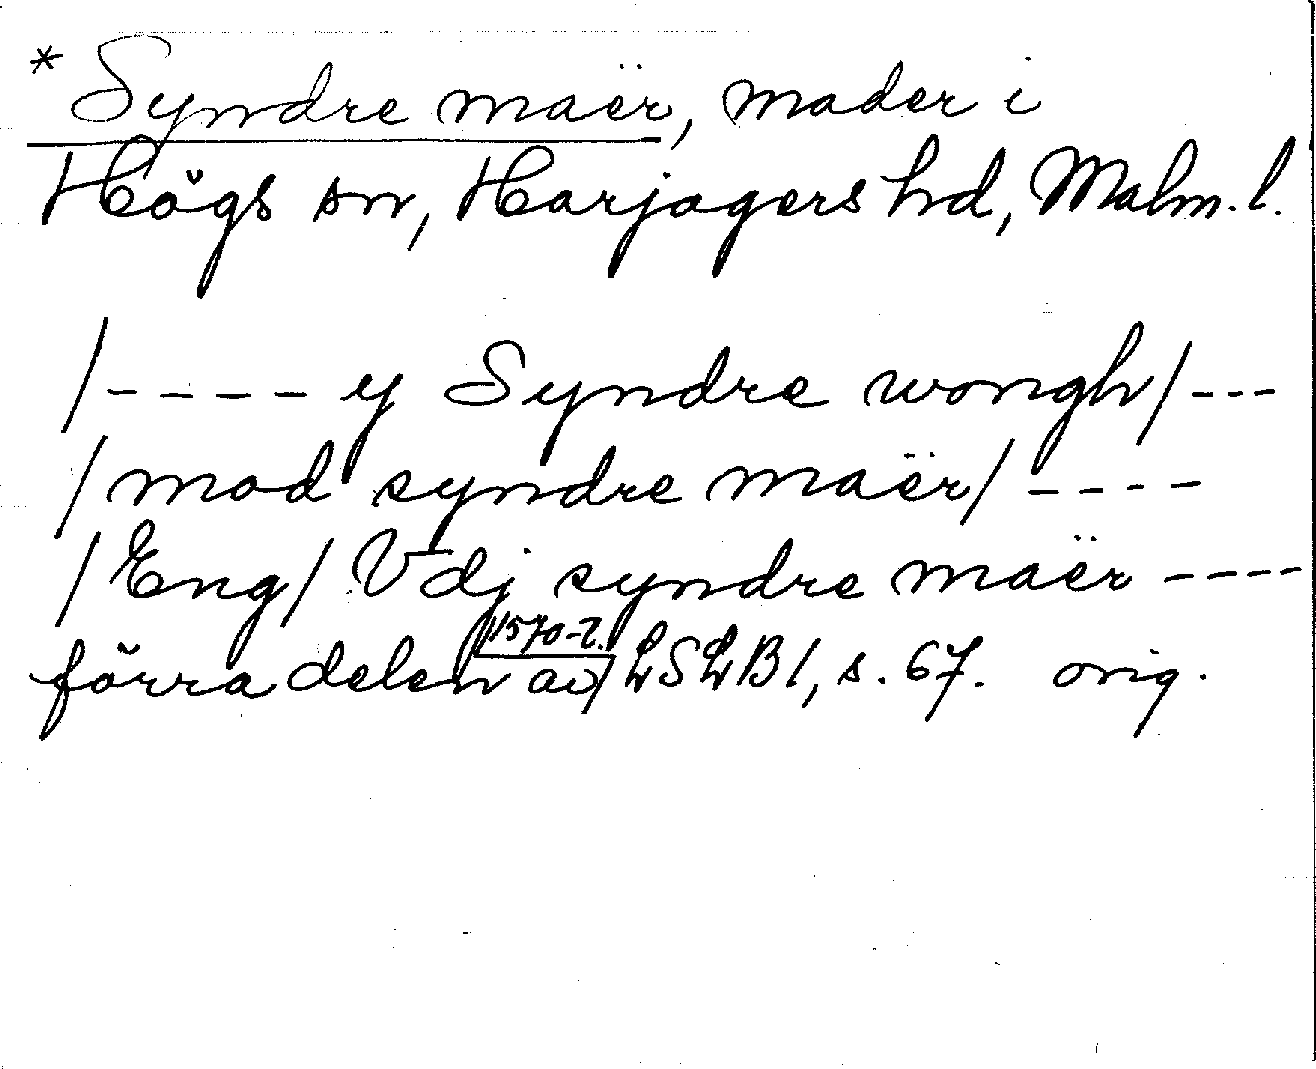 * Syndre maër, mader i
Högs sn, Harjagers hd, Malm. l.
/---- y Syndre wongh/---
/mod syndre maër/ ----
/Eng/ Vdj syndre maër ----
förra delen av 1570-t./ LSLB1, s. 67. orig.